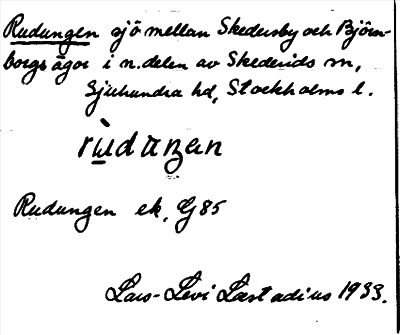 Rudungen sjö mellan Skedersby och Björn-
borgs ägor i n. delen av Skederids sn,
Sjuhundra hd, Stockholms l.
Rudungen ek, G 85
Lars-Levi Læstadius 1933.